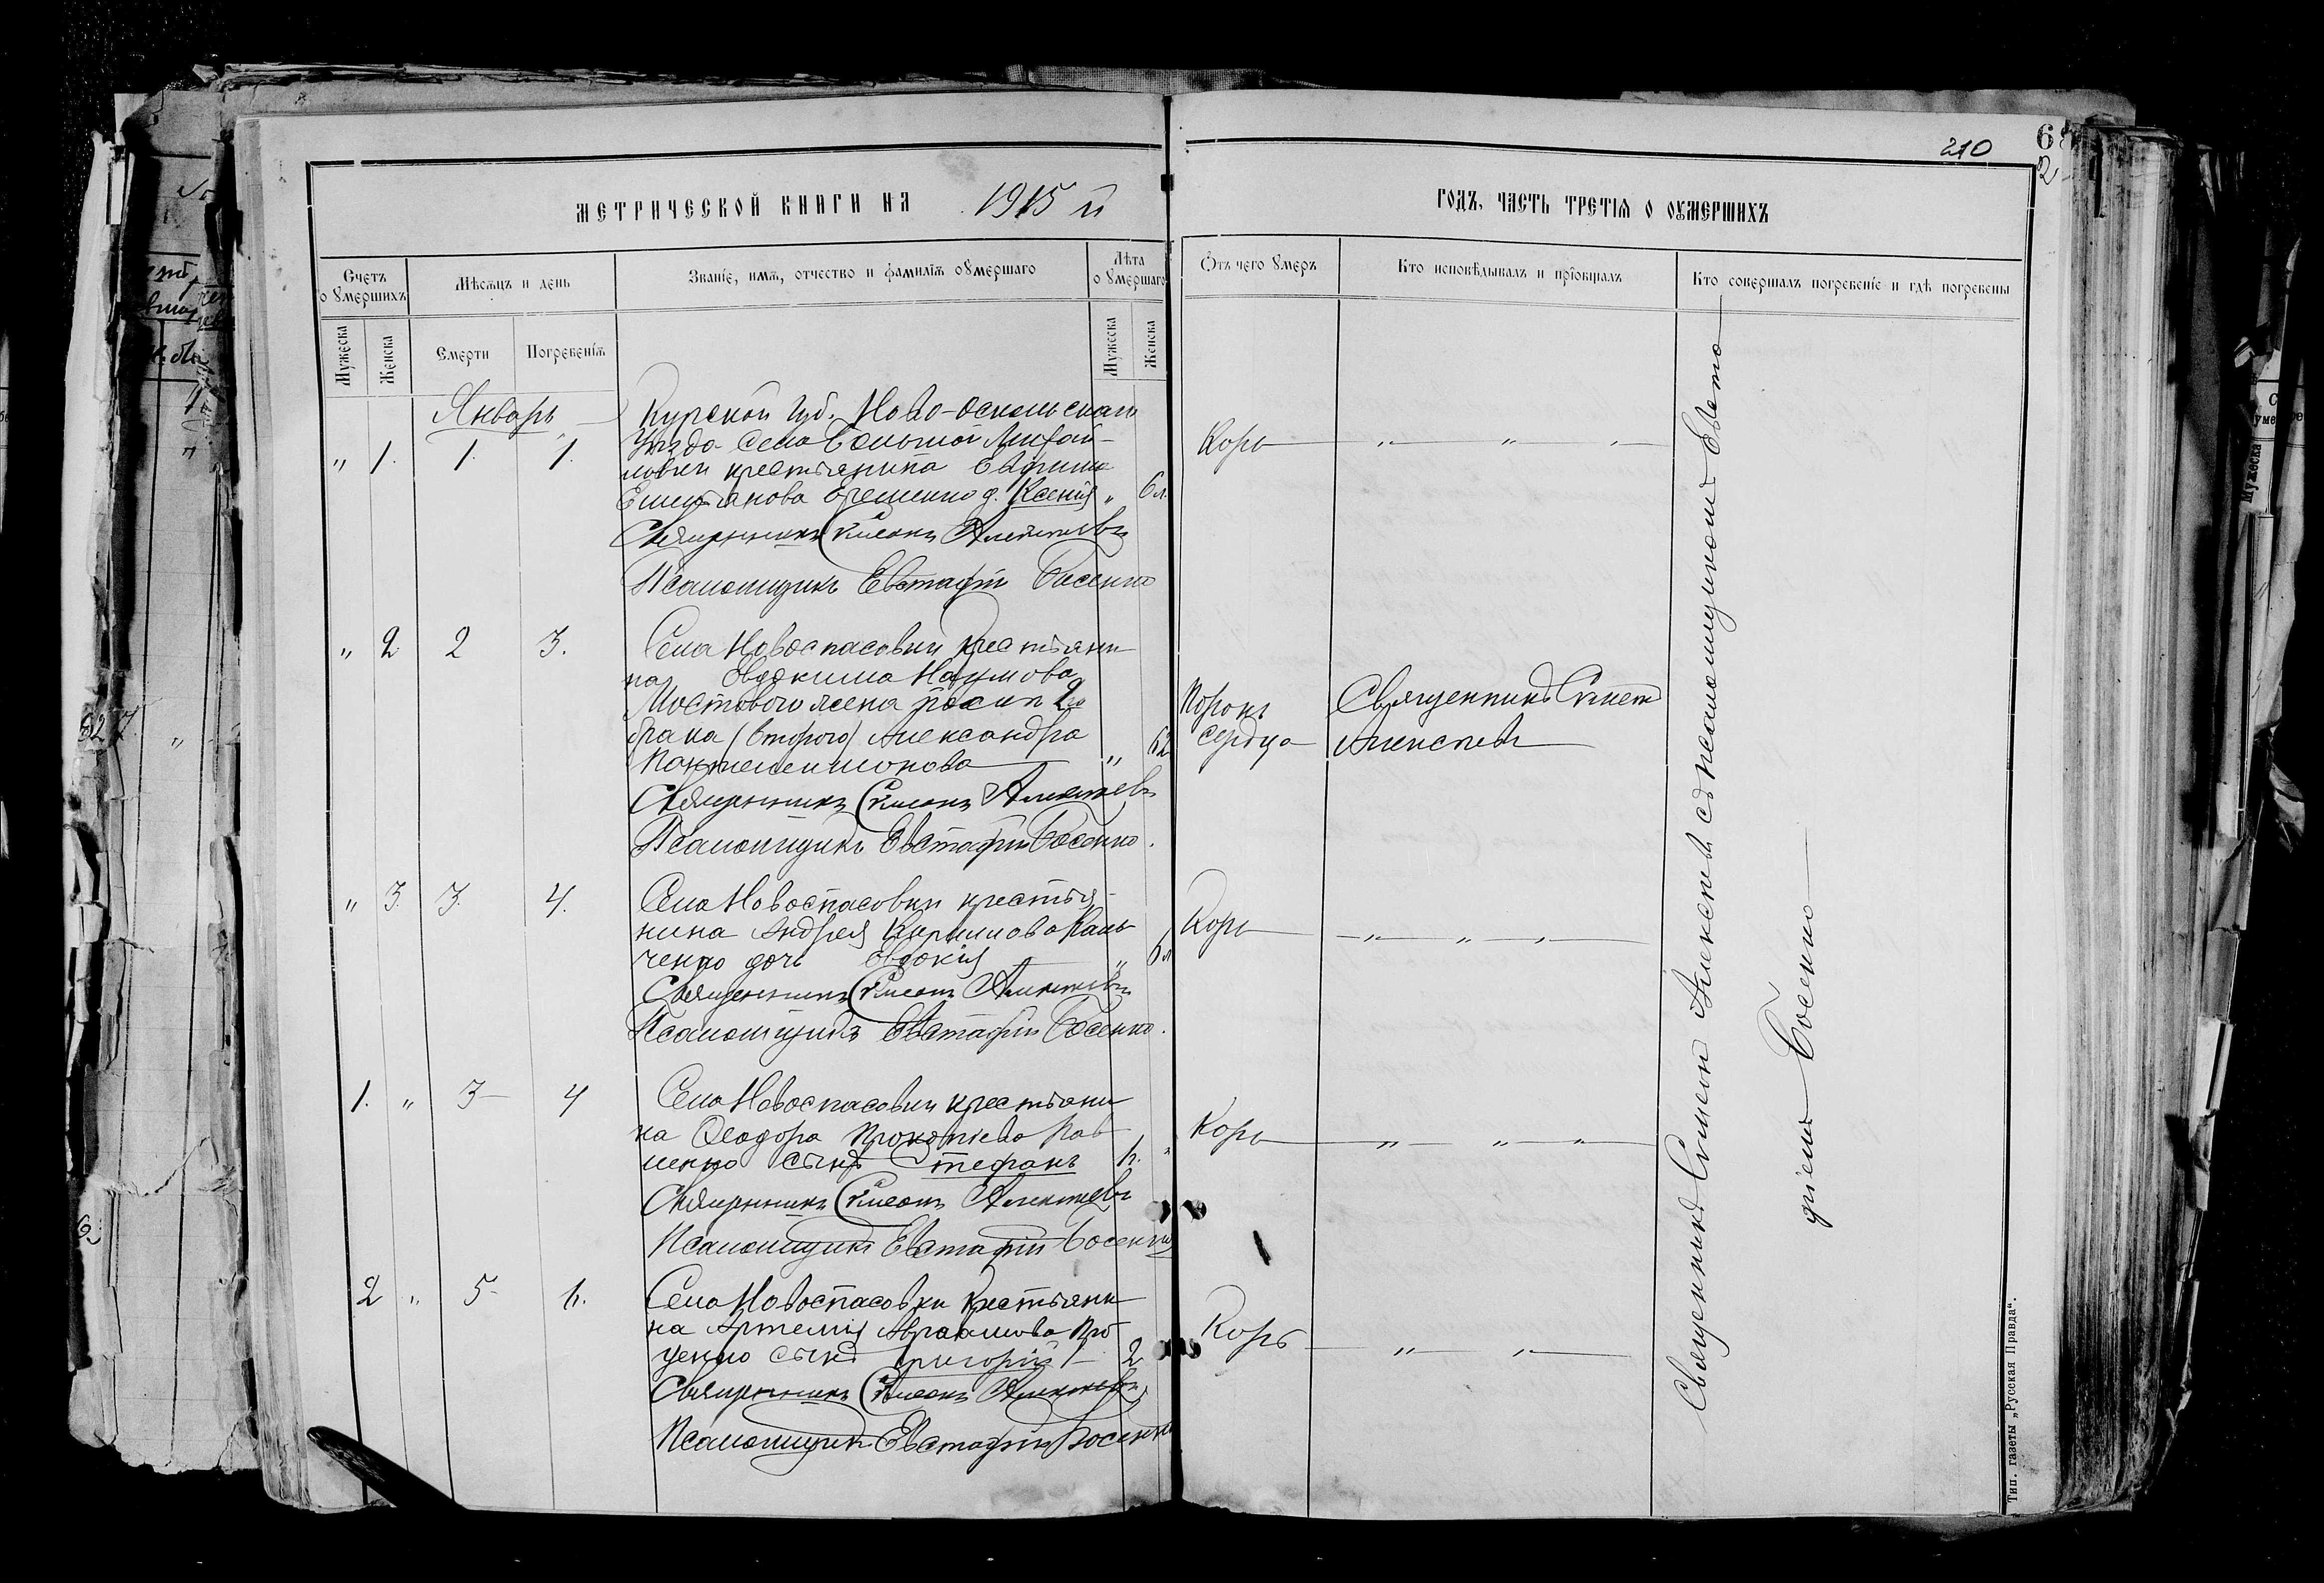 210
МЕТРИЧЕСКОЙ КНИГИ НА 1915 й
ГОДЪ, ЧАСТЬ ТРЕТІЯ О ОУМЕРШИХЪ
Счетъ оумершихъ
Мѣсяцъ и день
Званіе, имя, отчество и фамилія оумершаго
Лѣта оумершаго
Отъ чего умеръ
Кто исповѣдывалъ и пріобщалъ
Кто совершалъ погребеніе и гдѣ погребены
Мужеска
Женска
Смерти
Погребенія
Мужеска
Женска
Январь
Курской губ. Ново-Оскольскаго
" 1. 1. 1. Уѣзда села Большой Михай-
ловки крестьянина Ефима
Ерещенко д. Ксенія " 6 л. Корь
Священникъ Симеонъ Алексѣевъ
Псаломщикъ Евстафій Босенко
" 2 2 3. Села Новоспасовки крестьяни
на Евдокима Наумова
Мостового жена 2го
брака (второго) Александра
Пантелеимонова " 62 Порокъ сердца Священникъ Симеон Алексѣев
Священникъ Симеонъ Алексѣевъ
Псаломщикъ Евстафій Босенко.
" 3. 3. 4. Села Новоспасовки крестья-
нина Андрея Кириллова
ченко дочь Евдокія " Корь
Священникъ Симеонъ Алексѣевъ
Псаломщикъ Евстафій Босенко.
1. " 3 4 Села Новоспасовки крестьяни
на Ѳеодора Прокопіева Пав
ленко сынъ Стефанъ Корь
Священникъ Симеонъ Алексѣевъ
Псаломщикъ Евстафій Босенко
2 " 5 Села Новоспасовки крестьяни
на Артемія Авраамова Про
ценко сынъ Григорій 2 Корь
Священникъ Симеонъ Алексѣевъ
Псаломщикъ Евстафій Босенко
Священникъ Симеон Алексѣев съ псаломщикомъ Евста-
фіемъ Босенко
Тип. газеты „Русская Правда“.